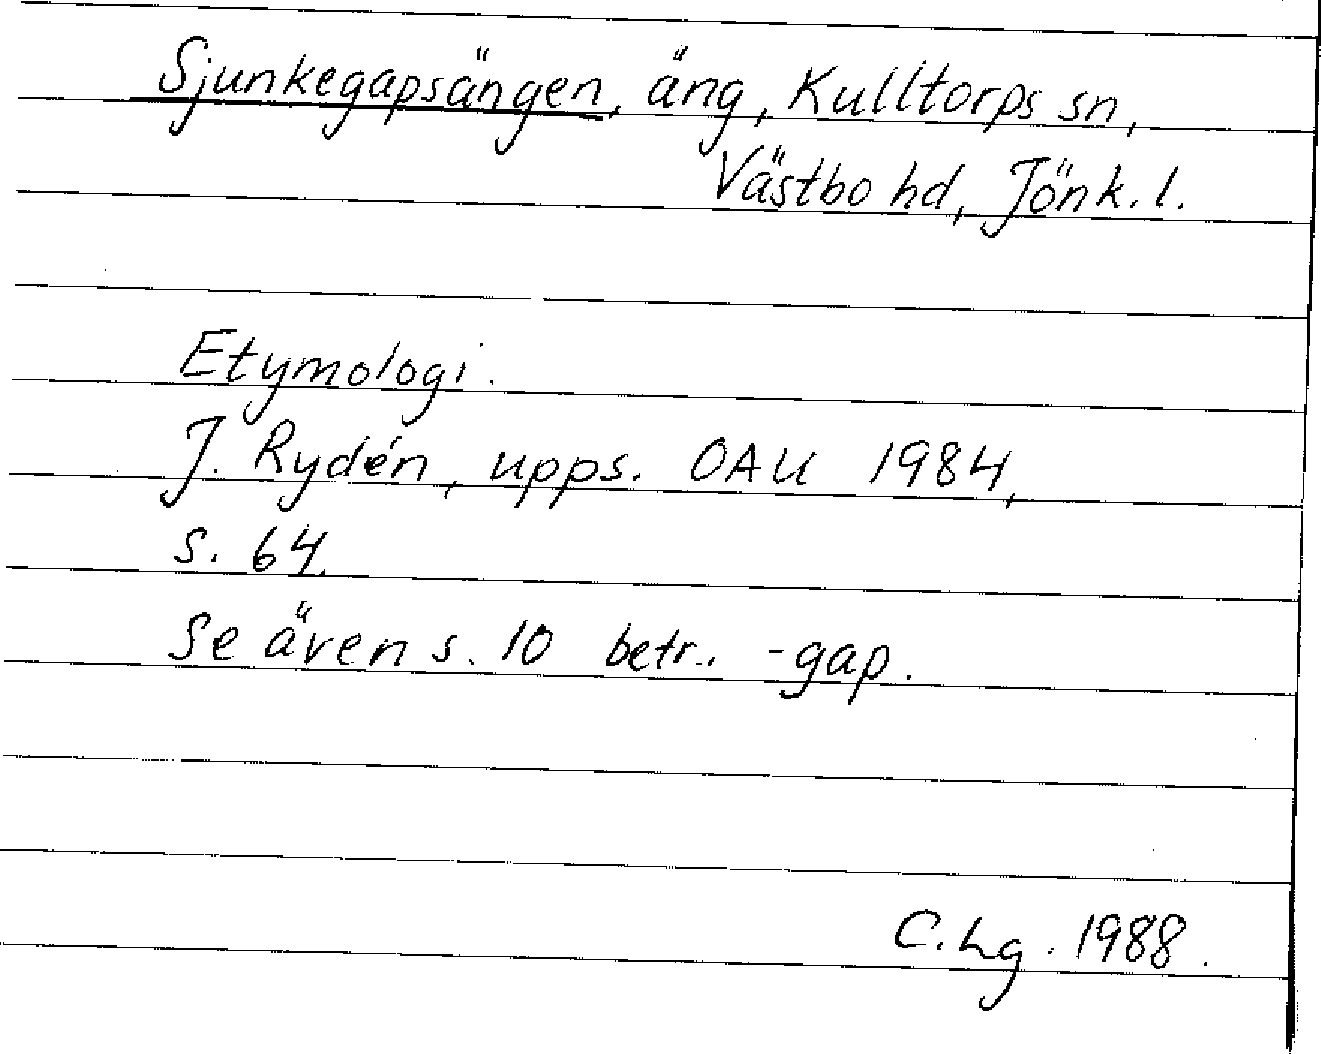 Sjunkegapsängen, äng, Kulltorps sn,
Västbo hd, Jönk. l.
Etymologi.
J. Rydén, upps. OAU 1984,
s. 64.
Se även s. 10 betr. -gap.
C. Lg. 1988.